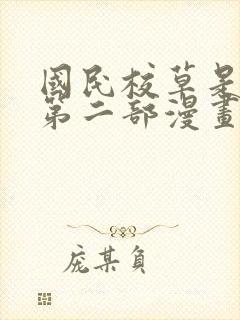 國民校草是
第二部漫畫
庞某負